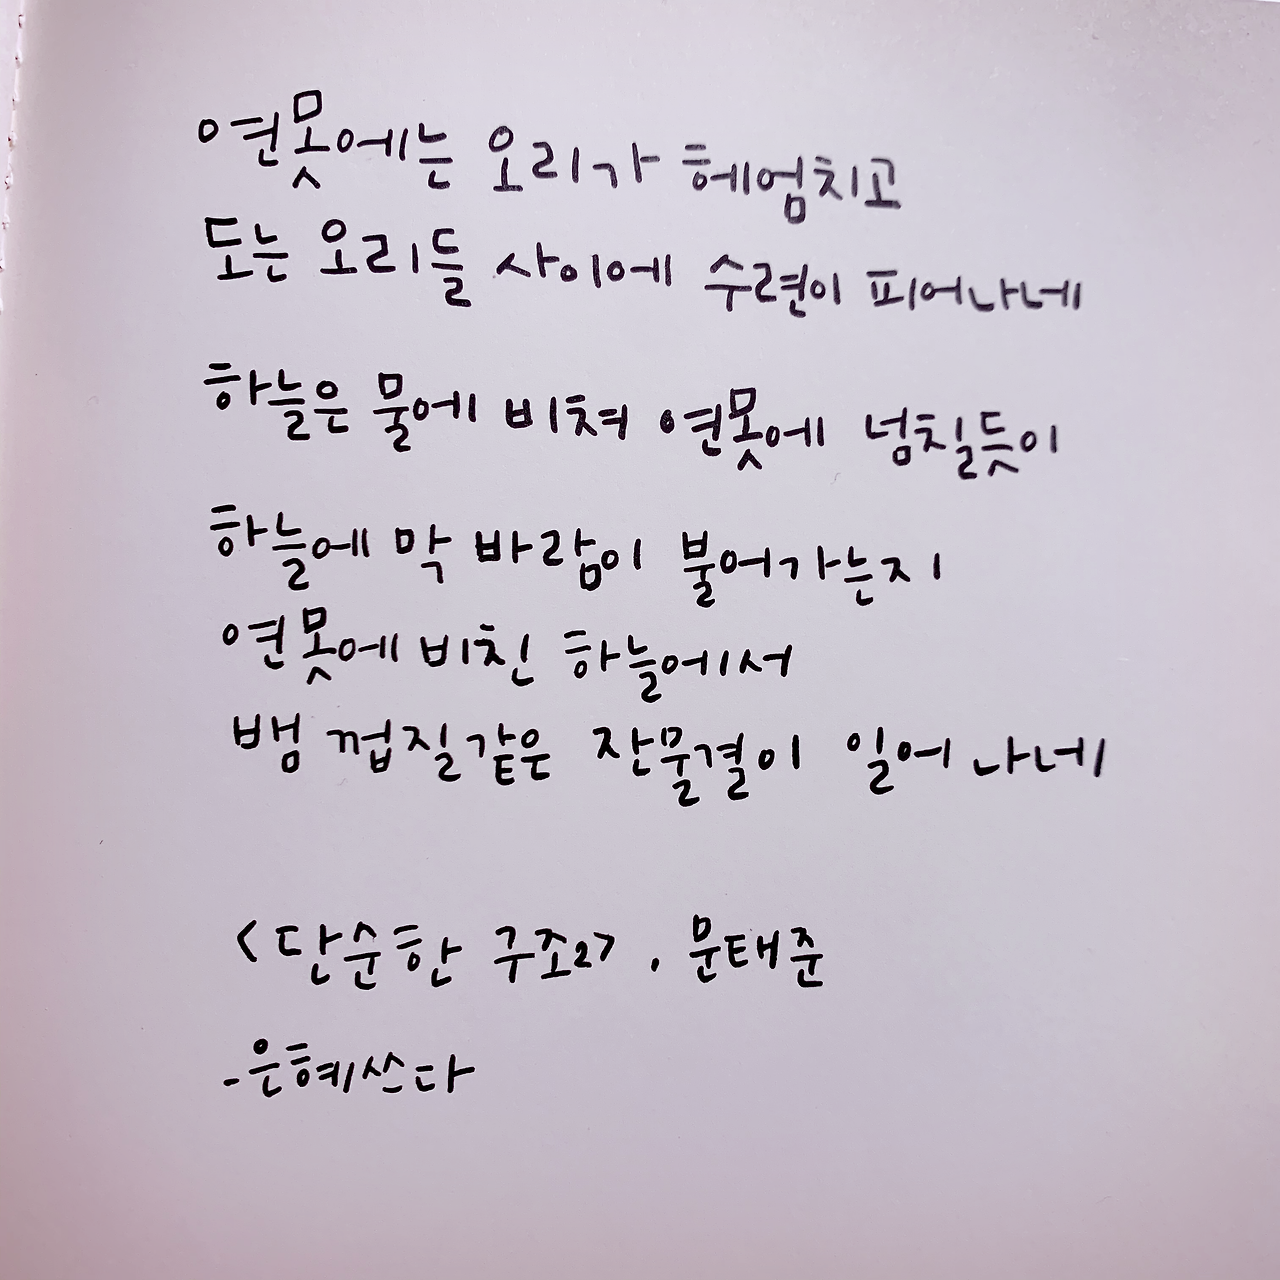 연못에는 오리가 헤엄치고
도는 오리들 사이에 수련이 피어나네
하늘은 물에 비쳐 연못에 넘칠듯이
하늘에 막 바람이 불어가는지
연못에 비친 하늘에서
뱀 껍질같은 잔물결이 일어 나네
<단순한 구조2>, 문태준
-은혜쓰다